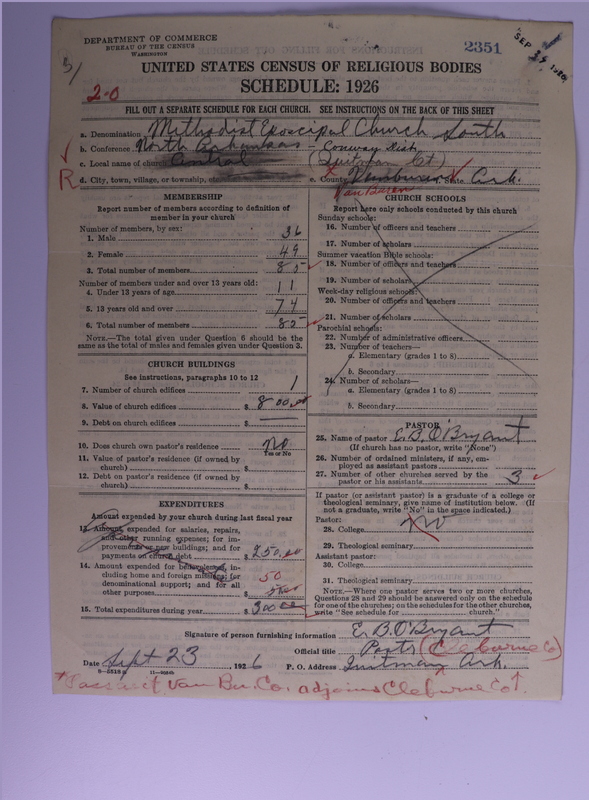 DEPARTMENT OF COMMERCE
BUREAU OF THE CENSUS
WASHINGTON
2351
SEP 25 1926
UNITED STATES CENSUS OF RELIGIOUS BODIES
SCHEDULE: 1926
2-0
FILL OUT A SEPARATE SCHEDULE FOR EACH CHURCH. SEE INSTRUCTIONS ON THE BACK OF THIS SHEET
a. Denomination Methodist Episcopal Church South
b. Conference North Arkansas - Conway Dist
c. Local name of church Central
d. City, town, village, or township, e. County Vanburen State Ark.
R
Van Buren
MEMBERSHIP
Report number of members according to definition of
member in your church
Number of members, by sex:
1. Male 36
2. Female 49
3. Total number of members 85
Number of members under and over 13 years old:
4. Under 13 years of age 11
5. 13 years old and over 74
6. Total number of members 85
NOTE.—The total given under Question 6 should be the
same as the total of males and females given under Question 3.
CHURCH BUILDINGS
See instructions, paragraphs 10 to 12
7. Number of church edifices 1
8. Value of church edifices $ 800.00
9. Debt on church edifices $
10. Does church own pastor's residence No
Yes or No
11. Value of pastor's residence (if owned by
church) $
12. Debt on pastor's residence (if owned by
church) $
EXPENDITURES
Amount expended by your church during last fiscal year
13. Amount expended for salaries, repairs,
and other running expenses; for im-
provements or new buildings; and for
payments on church debt $ 250.00
14. Amount expended for benevolences, in-
cluding home and foreign missions; for
denominational support; and for all
other purposes $ 50
15. Total expenditures during year $ 300.00
CHURCH SCHOOLS
Report here only schools conducted by this church
Sunday schools:
16. Number of officers and teachers
17. Number of scholars
Summer vacation Bible schools:
18. Number of officers and teachers
19. Number of scholars
Week-day religious schools:
20. Number of officers and teachers
21. Number of scholars
Parochial schools:
22. Number of administrative officers
23. Number of teachers—
a. Elementary (grades 1 to 8)
b. Secondary
24. Number of scholars—
a. Elementary (grades 1 to 8)
b. Secondary
PASTOR
25. Name of pastor E. B. O'Bryant
(If church has no pastor, write "None")
26. Number of ordained ministers, if any, em-
ployed as assistant pastors
27. Number of other churches served by the
pastor or his assistants 3
If pastor (or assistant pastor) is a graduate of a college or
theological seminary, give name of institution below. (If
not a graduate, write "No" in the space indicated.)
Pastor:
28. College No
29. Theological seminary
Assistant pastor:
30. College
31. Theological seminary
NOTE.—Where one pastor serves two or more churches,
Questions 28 and 29 should be answered only on the schedule
for one of the churches; on the schedules for the other churches,
write "See schedule for church."
Signature of person furnishing information E. B. O'Bryant
Official title Pastor (Cleburne Co)
Date Sept 23, 1926 P. O. Address Ark.
Van Bu. Co. adjoins Cleburne Co